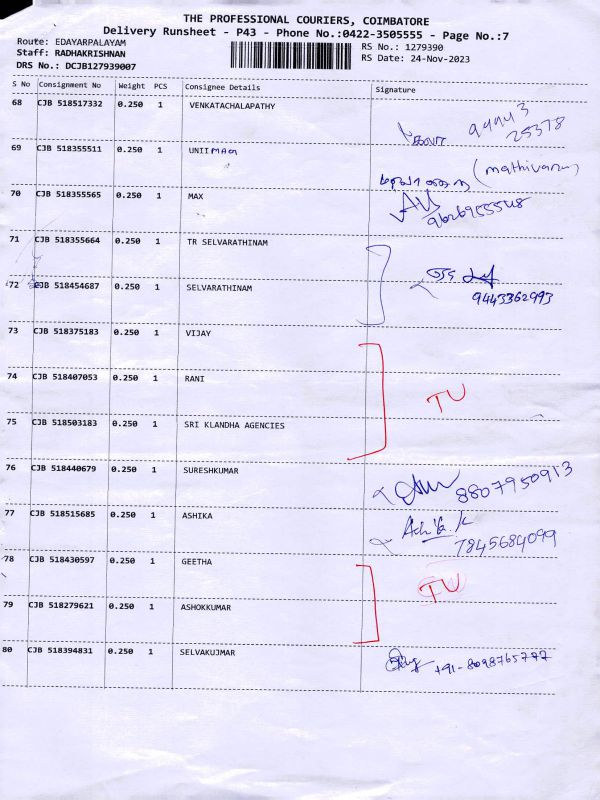 THE PROFESSIONAL COURIERS, COIMBATORE
Delivery Runsheet - P43 - Phone No.:0422-3505555 - Page No.:7
Route: EDAYARPALAYAM
RS No.: 1279390
Staff: RADHAKRISHNAN
RS Date: 24-Nov-2023
DRS No.: DCJB127939007
S No Consignment No Weight PCS Consignee Details Signature
68 CJB 518517332 0.250 1 VENKATACHALAPATHY
99943
25378
69 CJB 518355511 0.250 1 UNIIMAG
(mathivanan)
70 CJB 518355565 0.250 1 MAX
9626955548
71 CJB 518355664 0.250 1 TR SELVARATHINAM
72 CJB 518454687 0.250 1 SELVARATHINAM
9443362993
73 CJB 518375183 0.250 1 VIJAY
74 CJB 518407053 0.250 1 RANI
TU
75 CJB 518503183 0.250 1 SRI KLANDHA AGENCIES
76 CJB 518440679 0.250 1 SURESHKUMAR
8807950913
77 CJB 518515685 0.250 1 ASHIKA
Ashika.K
7845684099
78 CJB 518430597 0.250 1 GEETHA
TU
79 CJB 518279621 0.250 1 ASHOKKUMAR
80 CJB 518394831 0.250 1 SELVAKUJMAR
+91-8098765777